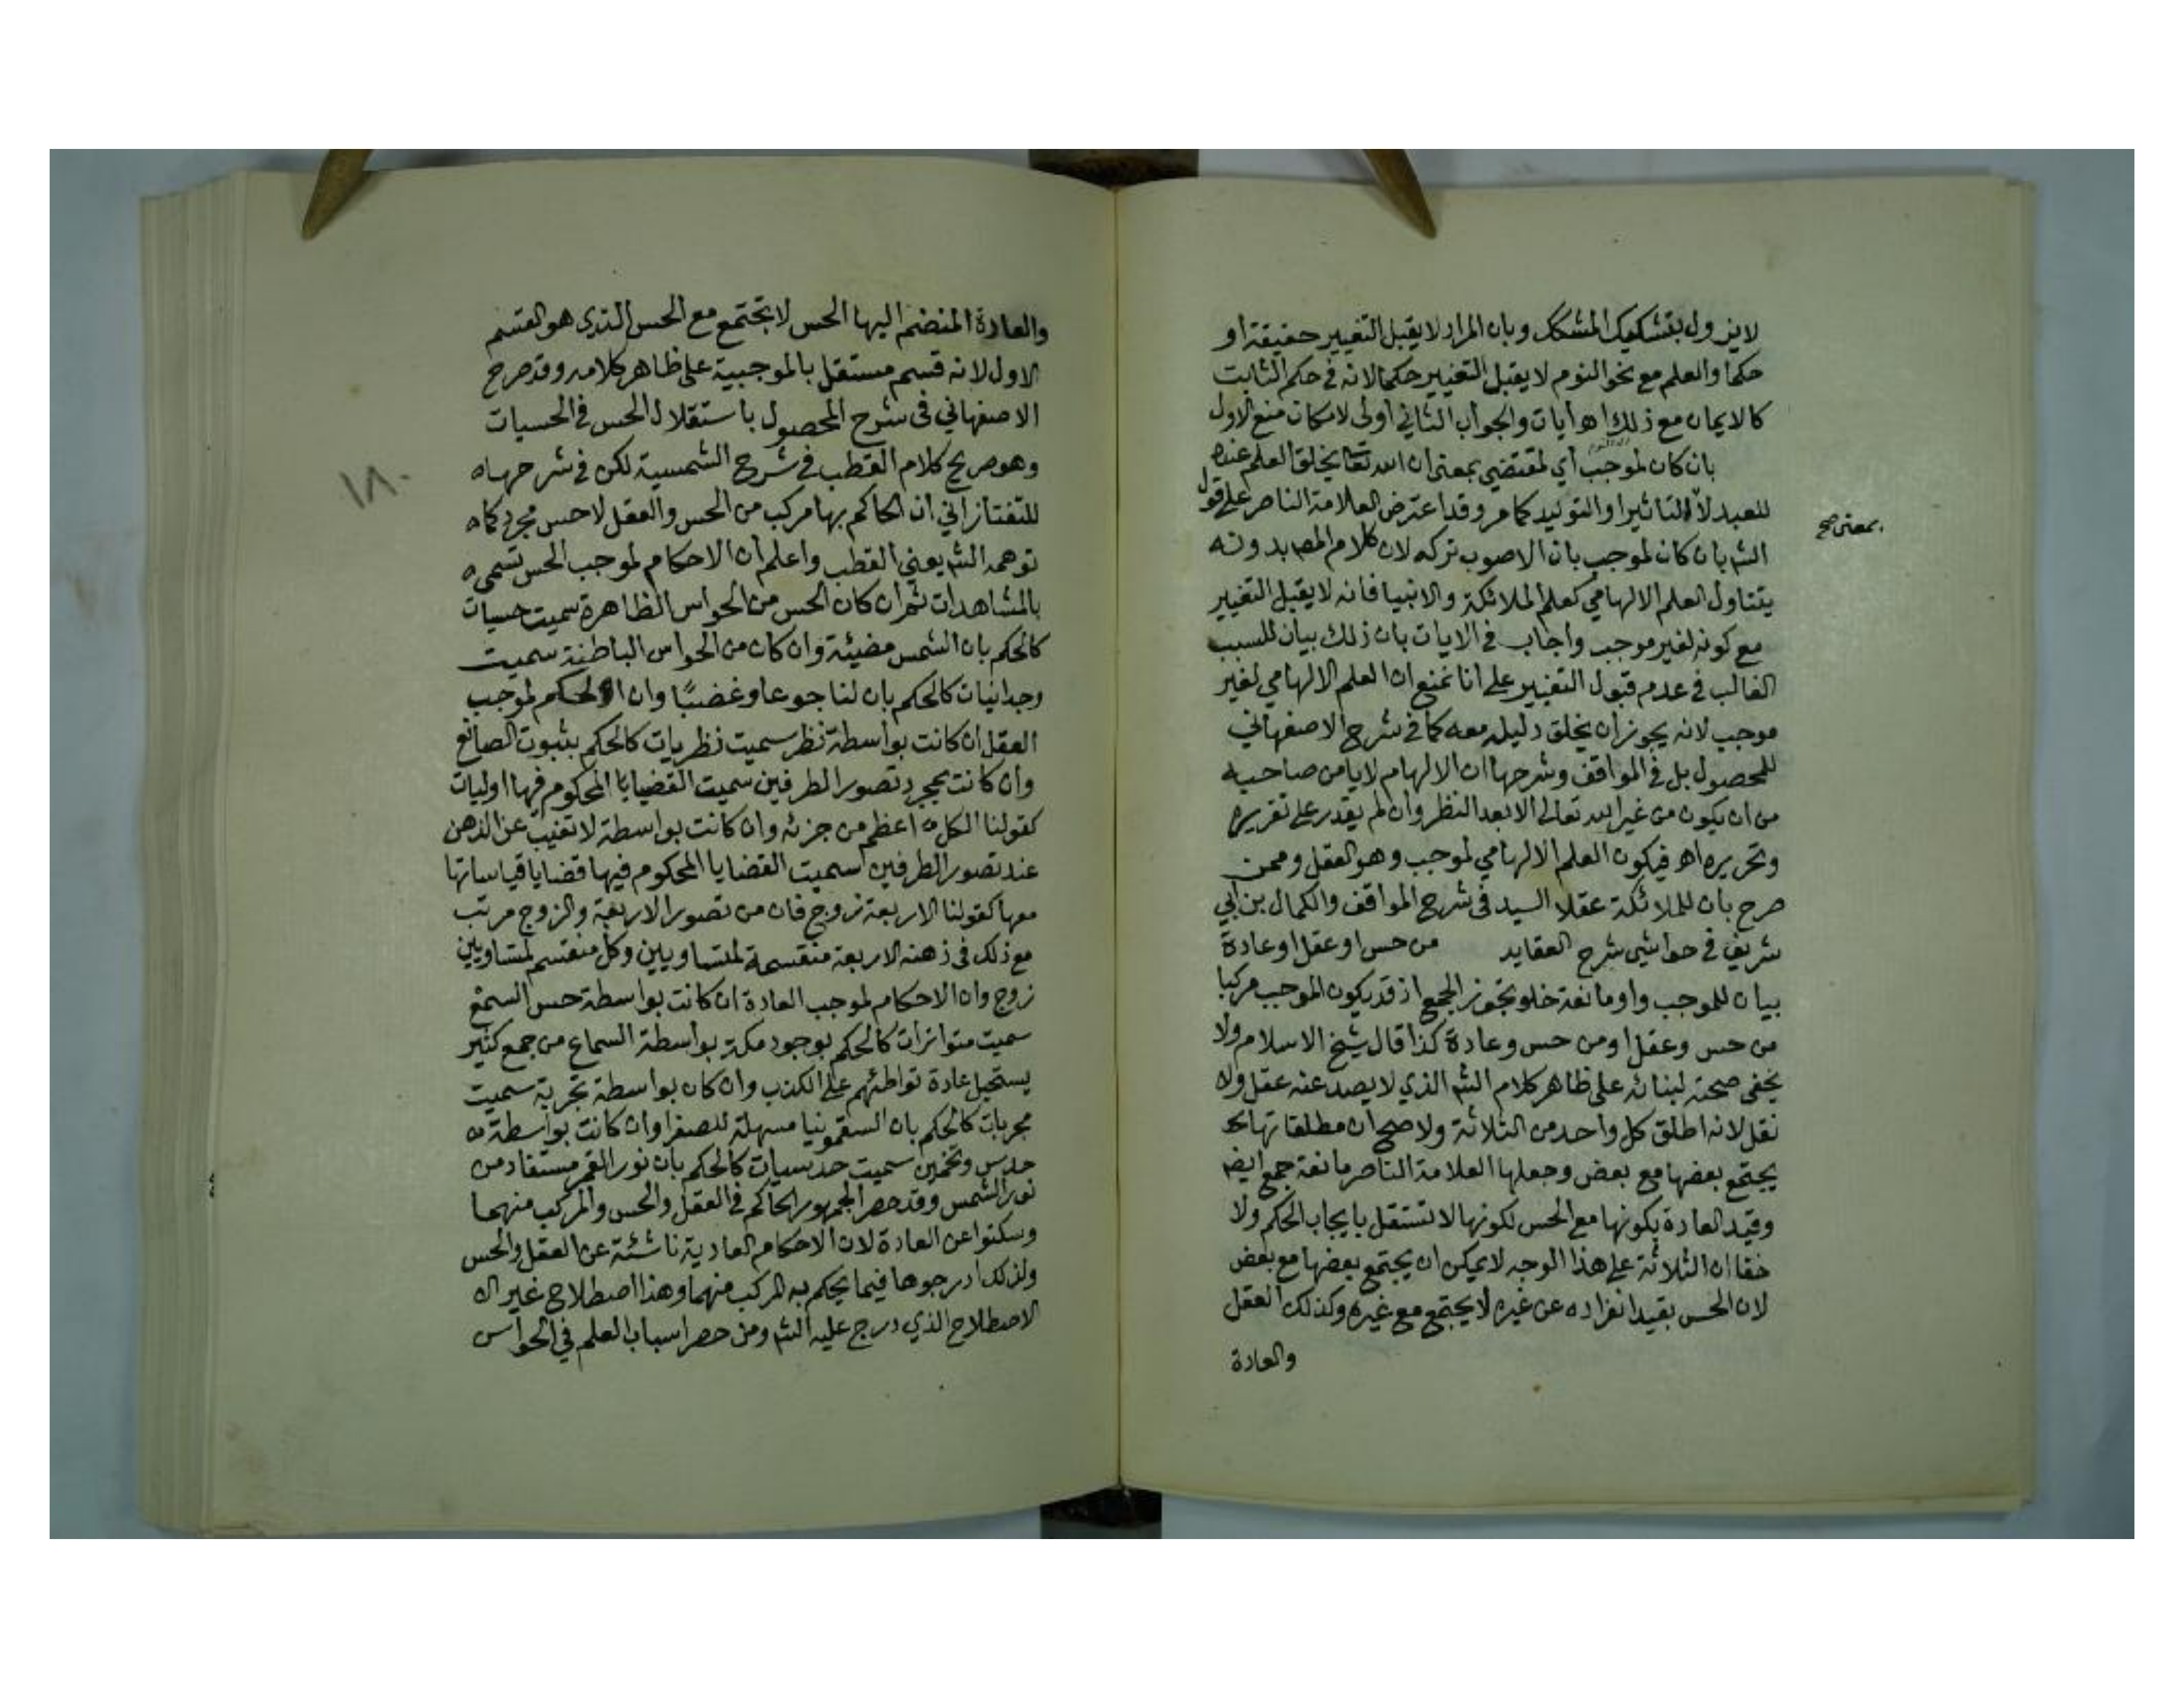 لا يزول بتشكيك المشكك وبان المراد لا يقبل التغيير حقيقة او
حكما والعلم مع نحو النوم لا يقبل التغيير حكما لانه في حكم الثابت
كالايمان مع ذلك اهـ ايات والجواب الثاني اولى لامكان منع الاول
بان كان لموجب اي لمقتضي بمعنى ان الله تعا يخلق العلم عنده
للعبد لا التاثير او التوليد كما مر وقد اعترض العلامة الناصر على قول
بمعنى صح
الشم بان كان لموجب بان الاصوب تركه لان كلام المصـ بدونه
يتناول العلم الالهامي كعلم الملائكة والانبيا فانه لا يقبل التغيير
مع كونه لغير موجب واجاب في الايات بان ذلك بيان للسبب
الغالب في عدم قبول التغيير على انا نمنع ان العلم الالهامي لغير
موجب لانه يجوز ان يخلق دليله معه كما في شرح الاصفهاني
للمحصول بل في المواقف وشرحها ان الالهام لا يامن صاحبه
من ان يكون من غير الله تعالى الا بعد النظر وان لم يقدر على تقريره
وتحريره اهـ فيكون العلم الالهامي لموجب وهو العقل وممن
صرح بان للملائكة عقلا السيد في شرح المواقف والكمال بن ابي
شريف في حواشي شرح العقايد من حس او عقل او عادة
بيان للموجب واو مانعة خلو تجوز الجمع اذ قد يكون الموجب مركبا
من حس وعقل او من حس وعادة كذا قال شيخ الاسلام ولا
يخفى صحته لبنائه على ظاهر كلام الشم الذي لا يصد عنه عقل ولا
نقل لانه اطلق كل واحد من الثلاثة ولا صح ان مطلقاتها
يجتمع بعضها مع بعض وجعلها العلامة الناصر مانعة جمع ايضـ
وقيد العادة بكونها مع الحس لكونها لا تستقل بايجاب الحكم ولا
خفا ان الثلاثة على هذا الوجه لا يمكن ان يجتمع بعضها مع بعض
لان الحس بقيد انفراده عن غيره لا يجتمع مع غيره وكذلك العقل
والعادة
والعادة المنضم اليها الحس لا تجتمع مع الحس الذي هو القسم
الاول لانه قسم مستقل بالموجبية على ظاهر كلامه وقد صرح
الاصفهاني في شرح المحصول باستقلال الحس في الحسيات
وهو صريح كلام القطب في شرح الشمسية لكن في شرحها ه
١٨٠
للتفتازاني ان الحاكم بها مركب من الحس والعقل لا حس مجرد كما ه
توهمه الشم يعني القطب واعلم ان الاحكام لموجب الحس تسمى ه
بالمشاهدات ثم ان كان الحس من الحواس الظاهرة سميت حسيات
كالحكم بان الشمس مضيئة وان كان من الحواس الباطنة سميت
وجدانيات كالحكم بان لنا جوعا وغضبًا وان الحكم لموجب
العقل ان كانت بواسطة نظر سميت نظريات كالحكم بثبوت الصانع
وان كانت بمجرد تصور الطرفين سميت القضايا المحكوم فيها اوليات
كقولنا الكل ه اعظم من جزئه وان كانت بواسطة لا تغيب عن الذهن
عند تصور الطرفين سميت القضايا المحكوم فيها قضايا قياساتها
معها كقولنا الاربعة زوج فان من تصور الاربعة والزوج مرتب
مع ذلك في ذهنه الاربعة منقسمة لمتساويين وكل منقسم لمتساويين
زوج وان الاحكام لموجب العادة ان كانت بواسطة حس السمع
سميت متواترات كالحكم بوجود مكة بواسطة السماع من جمع كثير
يستحيل عادة تواطئهم على الكذب وان كان بواسطة تجربة سميت
مجربات كالحكم بان السقمونيا مسهلة للصفرا وان كانت بواسطة ه
حدس وتخمين سميت حدسيات كالحكم بان نور القمر مستفاد من
نور الشمس وقد حصر الجمهور الحاكم في العقل والحس والمركب منهما
وسكتوا عن العادة لان الاحكام العادية ناشئة عن العقل والحس
ولذلك ادرجوها فيما يحكم به المركب منهما وهذا اصطلاح غير ال
الاصطلاح الذي درج عليه الشم ومن حصر اسباب العلم في الحواس